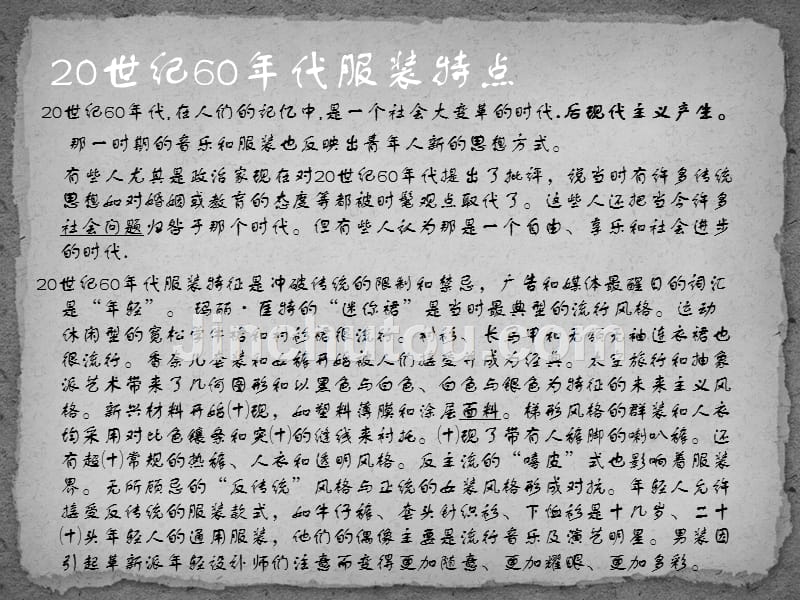 20世纪60年代服装特点
20世纪60年代,在人们的记忆中,是一个社会大变革的时代.后现代主义产生。
那一时期的音乐和服装也反映出青年人新的思想方式。
有些人尤其是政治家现在对20世纪60年代提出了批评，说当时有许多传统
思想如对婚姻或教育的态度等都被时髦观点取代了。这些人还把当今许多
社会问题归咎于那个时代。但有些人认为那是一个自由、享乐和社会进步
的时代.
20世纪60年代服装特征是冲破传统的限制和禁忌，广告和媒体最醒目的词汇
是“年轻”。玛丽·匡特的“迷你裙”是当时最典型的流行风格。运动
休闲型的宽松 和 很流行。 、长 和 无袖连衣裙也
很流行。香奈儿套装和 开始被人们接受并成为经典。太空旅行和抽象
派艺术带来了几何图形和以黑色与白色、白色与银色为特征的未来主义风
格。新兴材料开始(十)现，如塑料薄膜和涂层面料。梯形风格的群装和人衣
均采用对比色镶条和突(十)的缝线来衬托。(十)现了带有人裤脚的喇叭裤。还
有超(十)常规的热裤、人衣和透明风格。反主流的“嘻皮”式也影响着服装
界。无所顾忌的“反传统”风格与正统的女装风格形成对抗。年轻人允许
接受反传统的服装款式，如牛仔裤、套头针织衫、T恤衫是十几岁、二十
(十)头年轻人的通用服装，他们的偶像主要是流行音乐及演艺明星。男装因
引起革新派年轻设计师们注意而变得更加随意、更加耀眼、更加多彩。
jinchutou.com